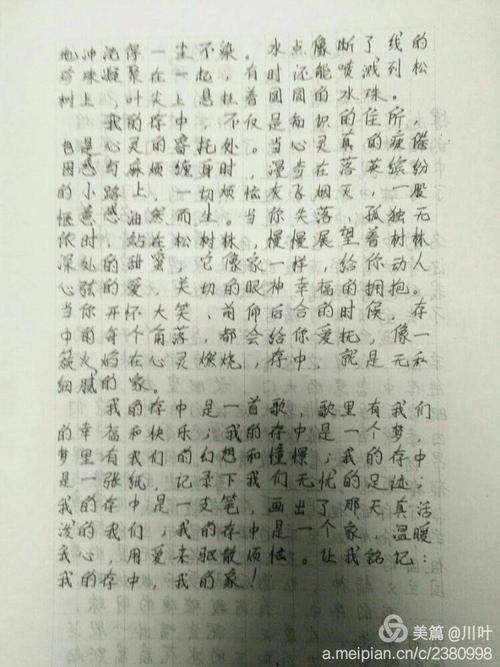 地冲洗得一尘不染。水点像断了线的
珍珠凝聚在一起，有时还能喷溅到松
树上，叶尖上悬挂着圆圆的水珠。
我的存中，不仅是知识的住所，
也是心灵的寄托处。当心灵真的疲倦
困惑与麻烦缠身时，漫步在落英缤纷
的小路上，一切烦恼灰子烟灭，一股
惬意油然而生。当你失落、孤独无
依时，站在松树林，慢慢展望着树林
深处的甜蜜，它像家一样，给你动人
心弦的爱，关切的眼神幸福的拥抱。
当你开怀大笑、前仰后合的时候，存
中的每个角落，都会给你爱抚，像一
簇火焰在心灵燃烧，存中，就是无私
细腻的家。
我的存中是一首歌，歌里有我们
的幸福和快乐；我的存中是一个梦，
梦里有我们的幻想和憧憬；我的存中
是一张纸，记录下我们无忧的足迹；
我的存中是一支笔，画出了那天真活
泼的我们；我的存中是一个家，温暖
我心，用爱来驱散烦恼。让我铭记：
我的存中，我的家！
美篇 @川叶
a.meipian.cn/c/2380998